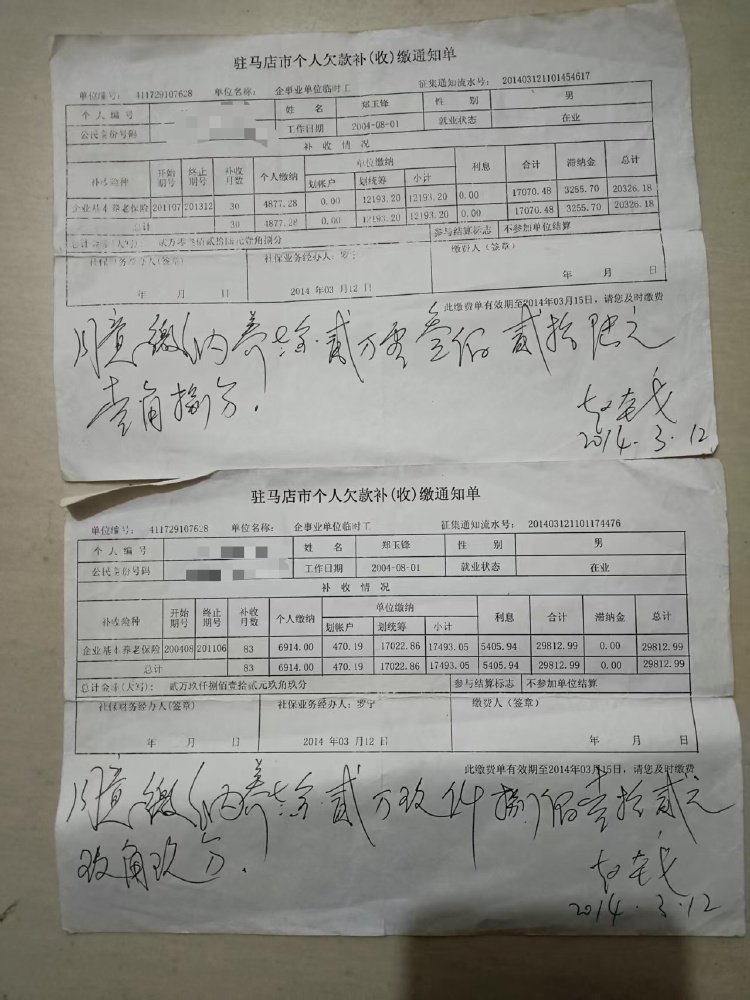 驻马店市个人欠款补(收)缴通知单
单位编号: 411729107628 单位名称: 企事业单位临时工 征集通知流水号: 201403121101454617
个人编号 姓 名 郑玉锋 性 别 男
公民身份号码 工作日期 2004-08-01 就业状态 在业
补 收 情 况
补收险种 开始期号 终止期号 补收月数 个人缴纳 单位缴纳 利息 合计 滞纳金 总计
划帐户 划统筹 小计
企业基本养老保险 201107 201312 30 4877.28 0.00 12193.20 12193.20 0.00 17070.48 3255.70 20326.18
总计 30 4877.28 0.00 12193.20 12193.20 0.00 17070.48 3255.70 20326.18
总计金额(大写): 贰万零叁佰贰拾陆元壹角捌分 参与结算标志 不参加单位结算
社保财务经办人(签章) 社保业务经办人: 罗宁 缴费人(签章)
年 月 日 2014 年03 月12 日 年 月 日
此缴费单有效期至2014年03月15日，请您及时缴费
同意缴纳养老金.贰万零叁佰贰拾陆元
壹角捌分.
2014.3.12
驻马店市个人欠款补(收)缴通知单
单位编号: 411729107628 单位名称: 企事业单位临时工 征集通知流水号: 201403121101174476
个人编号 姓 名 郑玉锋 性 别 男
公民身份号码 工作日期 2004-08-01 就业状态 在业
补 收 情 况
补收险种 开始期号 终止期号 补收月数 个人缴纳 单位缴纳 利息 合计 滞纳金 总计
划帐户 划统筹 小计
企业基本养老保险 200408 201106 83 6914.00 470.19 17022.86 17493.05 5405.94 29812.99 0.00 29812.99
总计 83 6914.00 470.19 17022.86 17493.05 5405.94 29812.99 0.00 29812.99
总计金额(大写): 贰万玖仟捌佰壹拾贰元玖角玖分 参与结算标志 不参加单位结算
社保财务经办人(签章) 社保业务经办人: 罗宁 缴费人(签章)
年 月 日 2014 年03 月12 日 年 月 日
此缴费单有效期至2014年03月15日，请您及时缴费
同意缴纳养老金.贰万玖仟捌佰壹拾贰元
玖角玖分.
2014.3.12